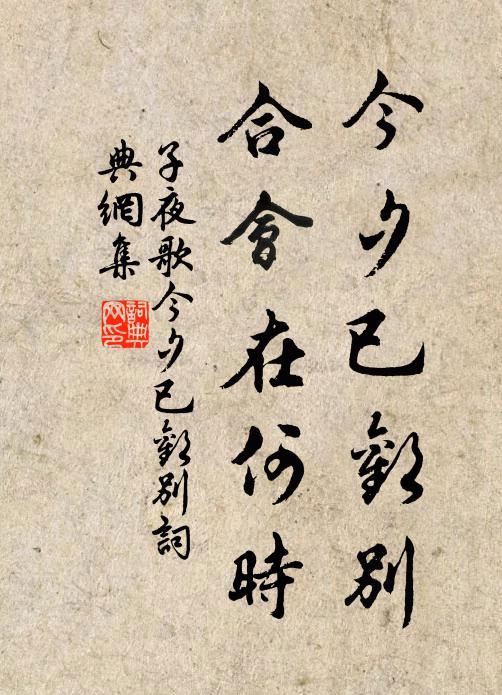 今夕已歡別
合會在何時
子夜歌今夕已歡別詞
典網集
詞典网印